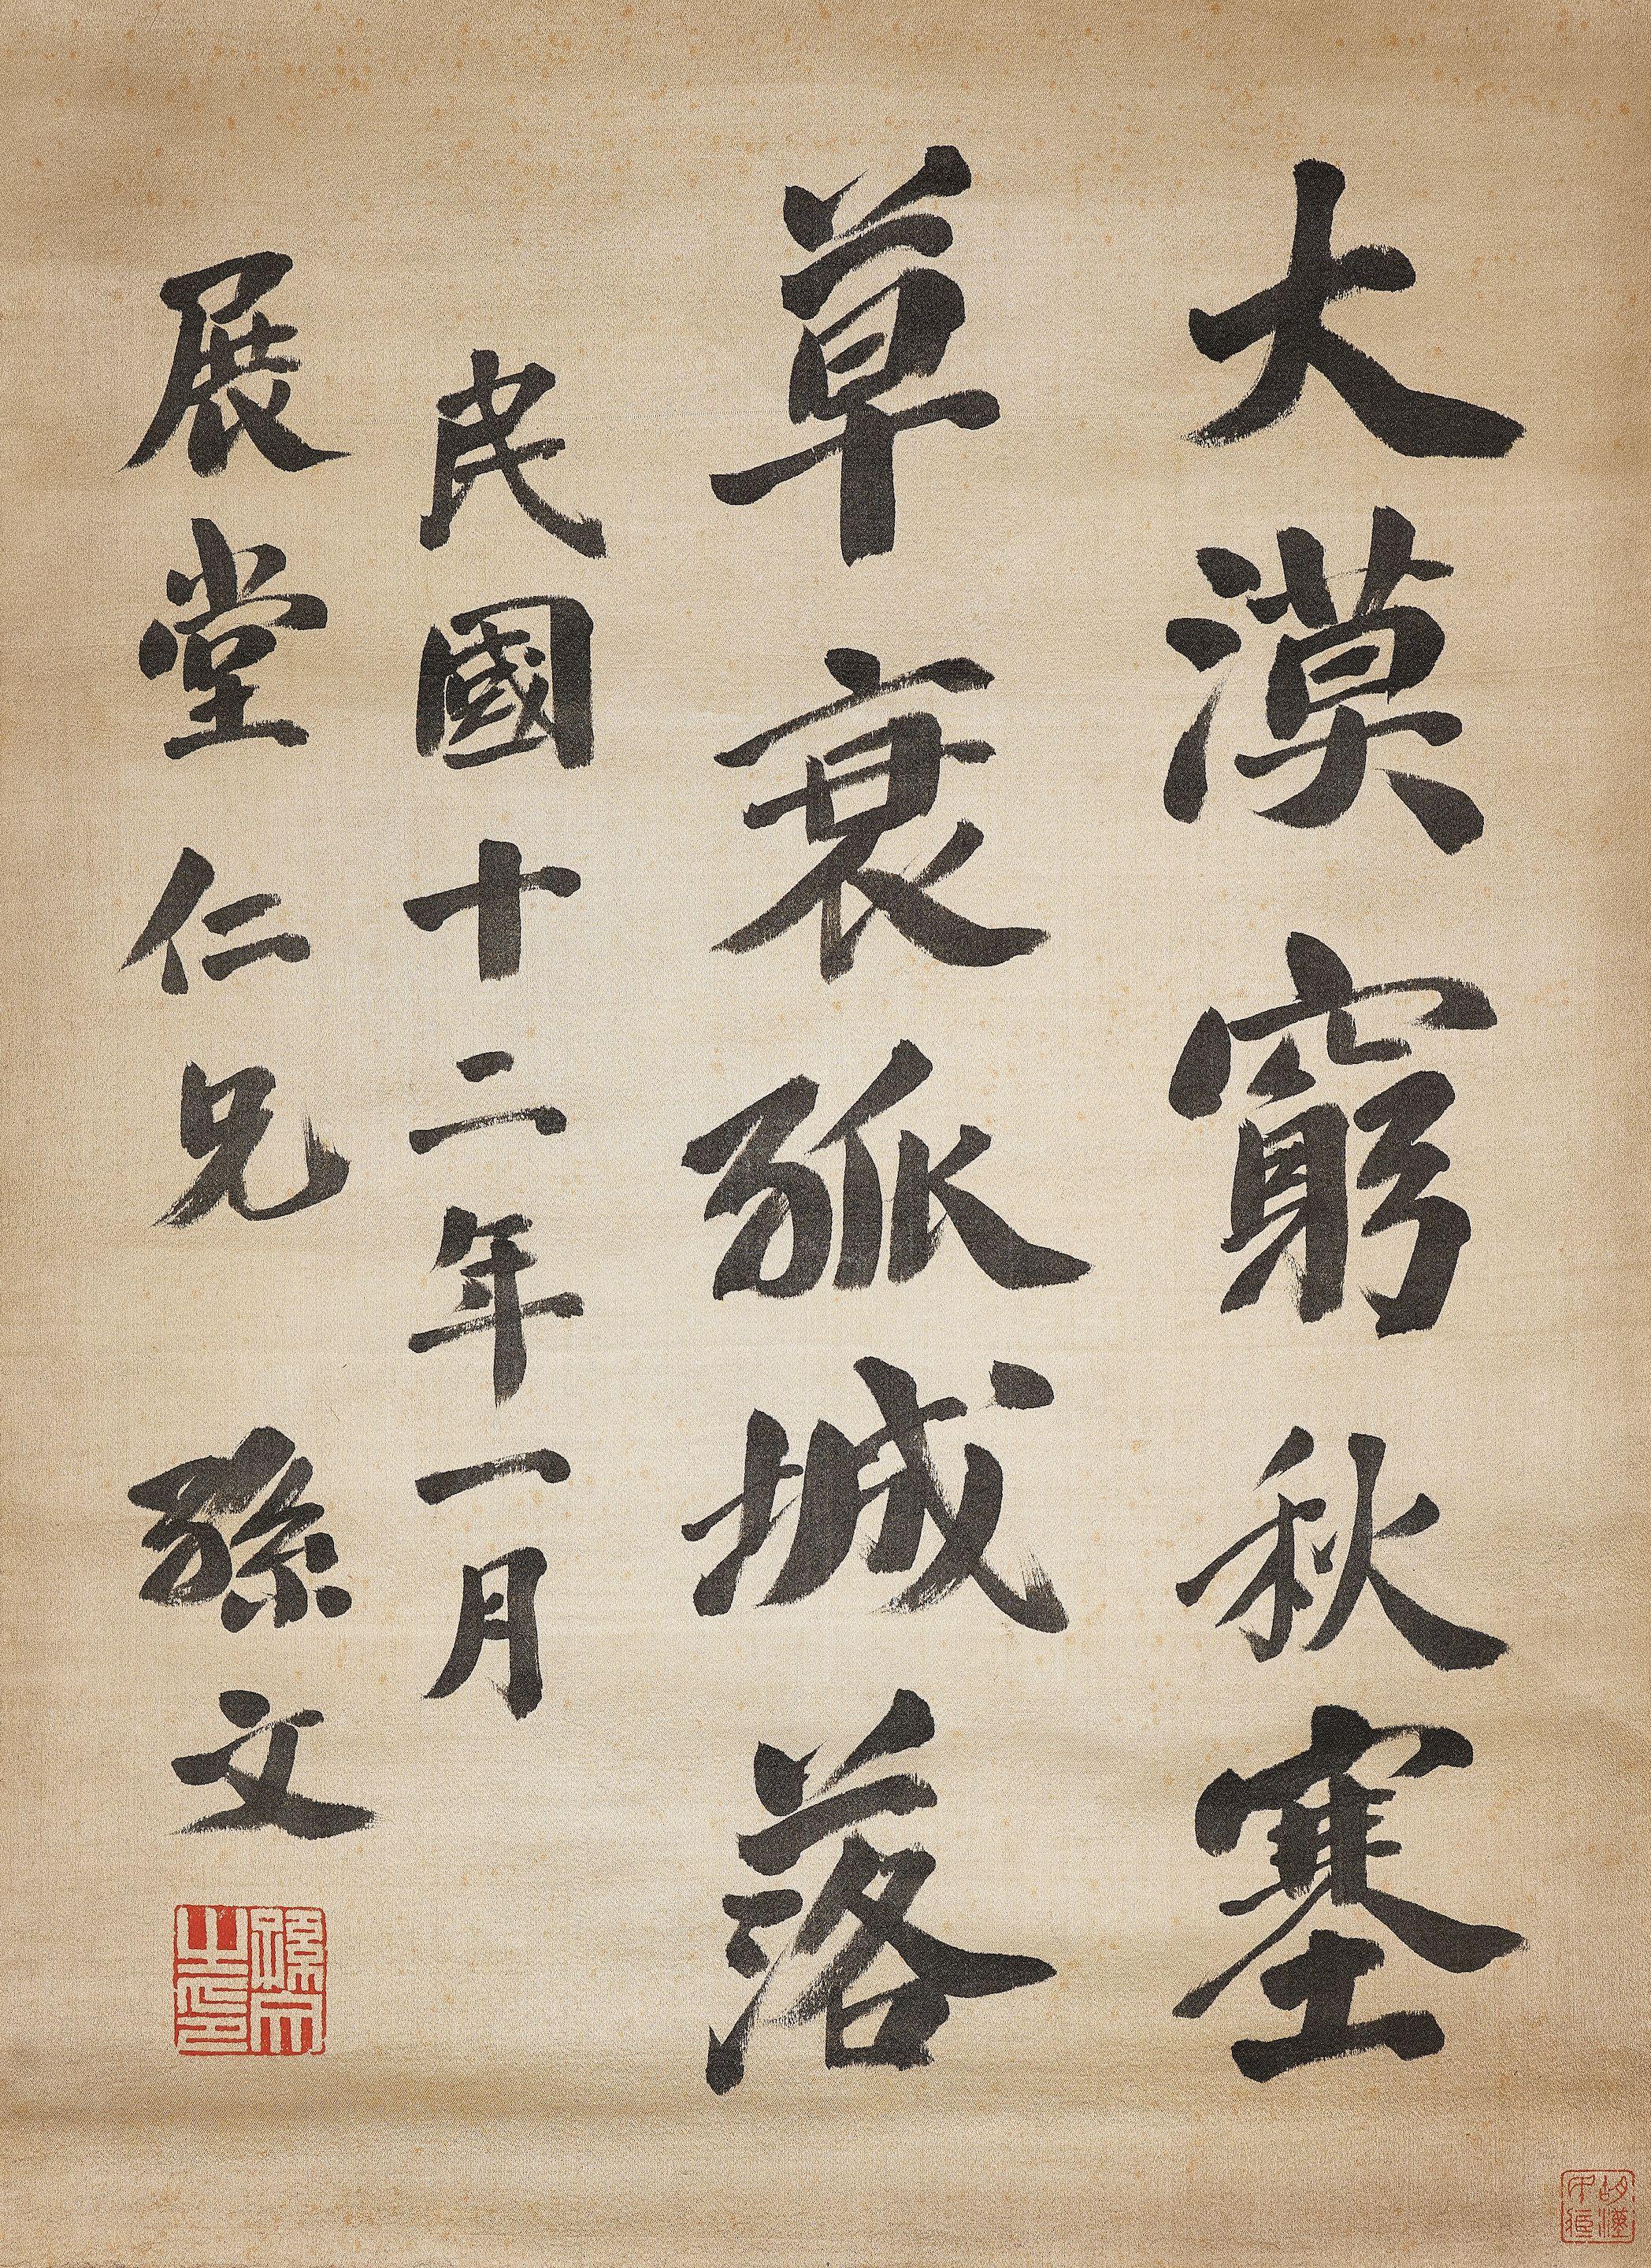 大漠窮秋塞
草衰孤城落
民國十二年一月
展堂仁兄 孫文
孫文之印